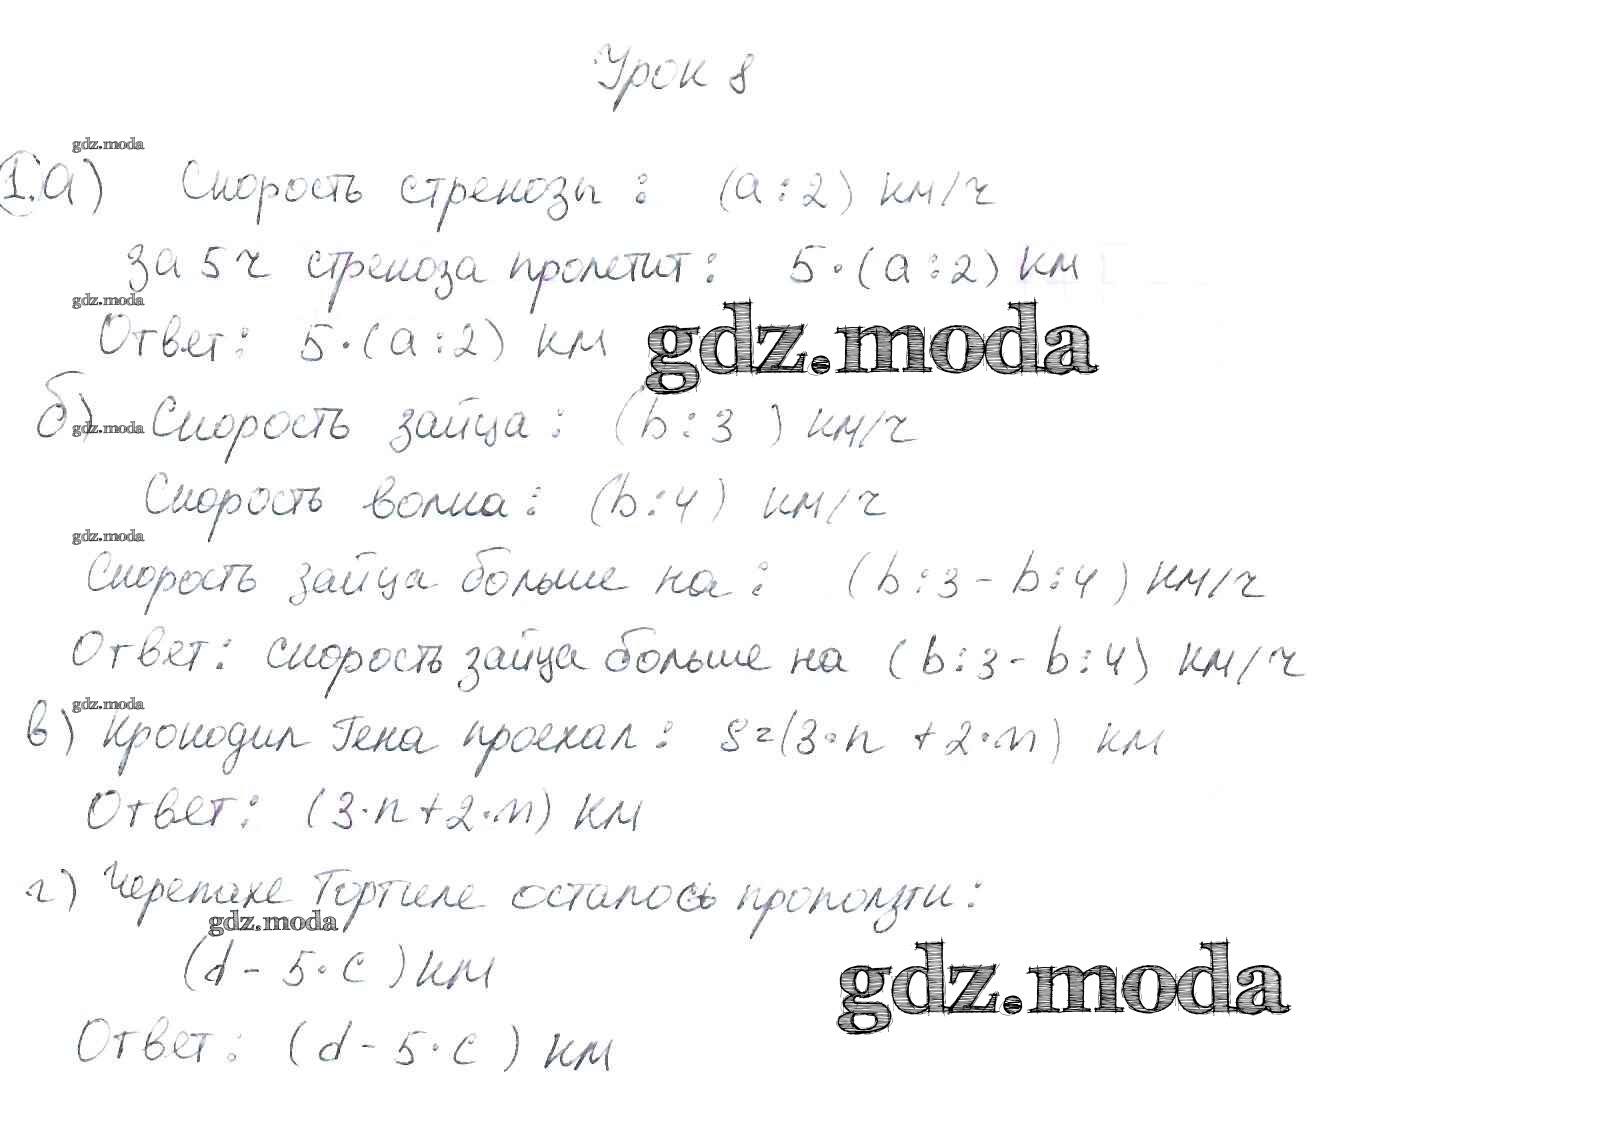 Урок 8
gdz.moda
1.а) Скорость стрекозы : (a:2) км/ч
за 5 ч стрекоза пролетит: 5·(a:2) км
gdz.moda
Ответ: 5·(a:2) км
gdz.moda
б) Скорость зайца: (b:3) км/ч
gdz.moda
Скорость волка: (b:4) км/ч
gdz.moda
Скорость зайца больше на: (b:3-b:4) км/ч
Ответ: скорость зайца больше на (b:3-b:4) км/ч
gdz.moda
в) Крокодил Гена проехал: S=(3·n+2·m) км
Ответ: (3·n+2·m) км
г) Черепахе Тортиле осталось проползти:
gdz.moda
(d-5·c) км
gdz.moda
Ответ: (d-5·c) км